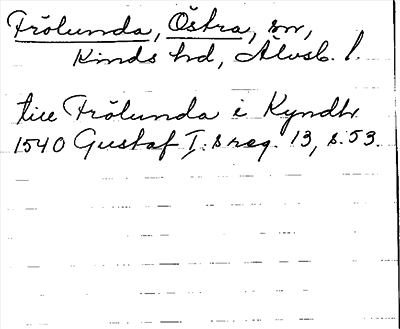 Frölunda, Östra, sn,
Kinds hd, Älvsb. l.
till Frölunda i Kyndhr
1540 Gustaf I:s reg. 13, s. 53.